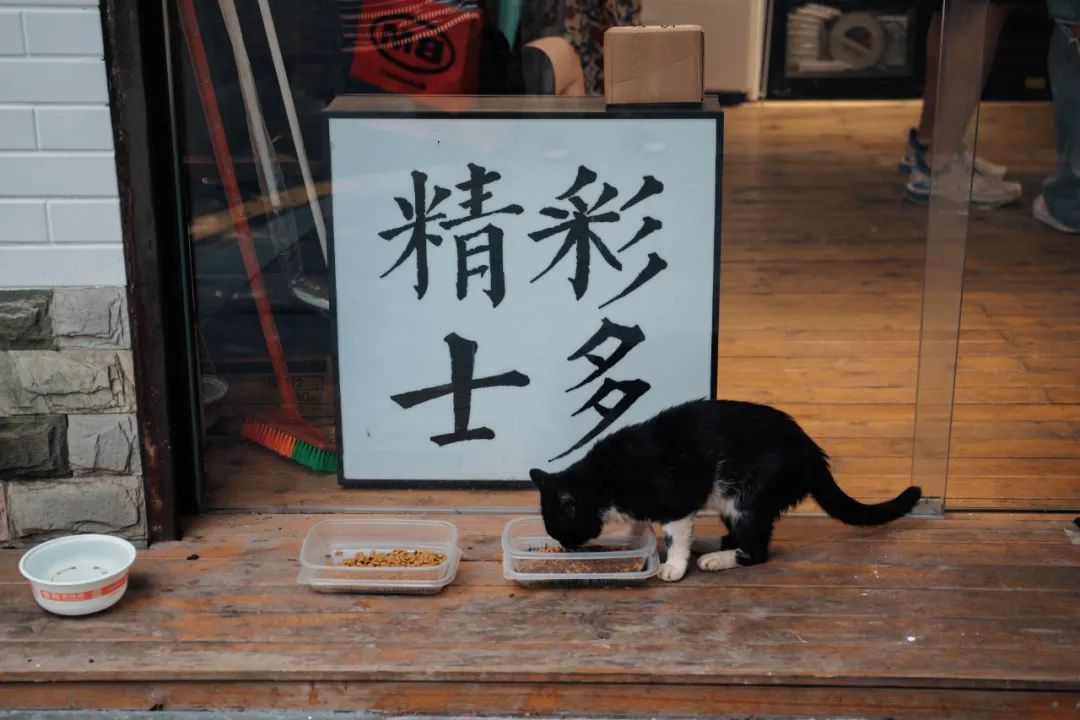 精彩
士多